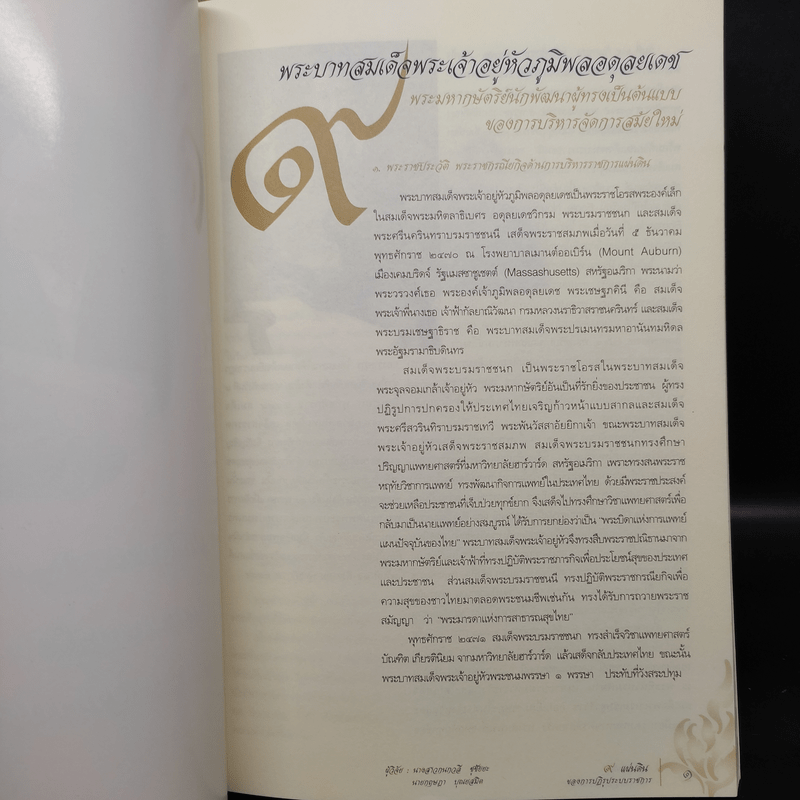 พระบาทสมเด็จพระเจ้าอยู่หัวภูมิพลอดุลยเดช
พระมหากษัตริย์นักพัฒนาผู้ทรงเป็นต้นแบบ
ของการบริหารจัดการสมัยใหม่
๙
๑. พระราชประวัติ พระราชกรณียกิจด้านการบริหารราชการแผ่นดิน
พระบาทสมเด็จพระเจ้าอยู่หัวภูมิพลอดุลยเดชเป็นพระราชโอรสพระองค์เล็ก
ในสมเด็จพระมหิตลาธิเบศร อดุลยเดชวิกรม พระบรมราชชนก และสมเด็จ
พระศรีนครินทราบรมราชชนนี เสด็จพระราชสมภพเมื่อวันที่ ๕ ธันวาคม
พุทธศักราช ๒๔๗๐ ณ โรงพยาบาลเมานต์ออเบิร์น (Mount Auburn)
เมืองเคมบริดจ์ รัฐแมสซาชูเซตต์ (Massashusetts) สหรัฐอเมริกา พระนามว่า
พระวรวงศ์เธอ พระองค์เจ้าภูมิพลอดุลยเดช พระเชษฐภคินี คือ สมเด็จ
พระเจ้าพี่นางเธอ เจ้าฟ้ากัลยาณิวัฒนา กรมหลวงนราธิวาสราชนครินทร์ และสมเด็จ
พระบรมเชษฐาธิราช คือ พระบาทสมเด็จพระปรเมนทรมหาอานันทมหิดล
พระอัฐมรามาธิบดินทร
สมเด็จพระบรมราชชนก เป็นพระราชโอรสในพระบาทสมเด็จ
พระจุลจอมเกล้าเจ้าอยู่หัว พระมหากษัตริย์อันเป็นที่รักยิ่งของประชาชน ผู้ทรง
ปฏิรูปการปกครองให้ประเทศไทยเจริญก้าวหน้าแบบสากลและสมเด็จ
พระศรีสวรินทิราบรมราชเทวี พระพันวัสสาอัยยิกาเจ้า ขณะพระบาทสมเด็จ
พระเจ้าอยู่หัวเสด็จพระราชสมภพ สมเด็จพระบรมราชชนกทรงศึกษา
ปริญญาแพทยศาสตร์ที่มหาวิทยาลัยฮาร์วาร์ด สหรัฐอเมริกา เพราะทรงสนพระราช
หฤทัยวิชาการแพทย์ ทรงพัฒนากิจการแพทย์ในประเทศไทย ด้วยมีพระราชประสงค์
จะช่วยเหลือประชาชนที่เจ็บป่วยทุกข์ยาก จึงเสด็จไปทรงศึกษาวิชาแพทยศาสตร์เพื่อ
กลับมาเป็นนายแพทย์อย่างสมบูรณ์ ได้รับการยกย่องว่าเป็น "พระบิดาแห่งการแพทย์
แผนปัจจุบันของไทย" พระบาทสมเด็จพระเจ้าอยู่หัวจึงทรงสืบพระราชปณิธานมาจาก
พระมหากษัตริย์และเจ้าฟ้าที่ทรงปฏิบัติพระราชภารกิจเพื่อประโยชน์สุขของประเทศ
และประชาชน ส่วนสมเด็จพระบรมราชชนนี ทรงปฏิบัติพระราชกรณียกิจเพื่อ
ความสุขของชาวไทยมาตลอดพระชนมชีพเช่นกัน ทรงได้รับการถวายพระราช
สมัญญา ว่า "พระมารดาแห่งการสาธารณสุขไทย"
พุทธศักราช ๒๔๗๑ สมเด็จพระบรมราชชนก ทรงสำเร็จวิชาแพทยศาสตร์
บัณฑิต เกียรตินิยม จากมหาวิทยาลัยฮาร์วาร์ด แล้วเสด็จกลับประเทศไทย ขณะนั้น
พระบาทสมเด็จพระเจ้าอยู่หัวพระชนมพรรษา ๑ พรรษา ประทับที่วังสระปทุม
ผู้วิจัย : นางสาวกนกวลี ชูชัยยะ
นายกฤษฎา บุณยสมิต
๙ แผ่นดิน
ของการปฏิรูประบบราชการ
๑